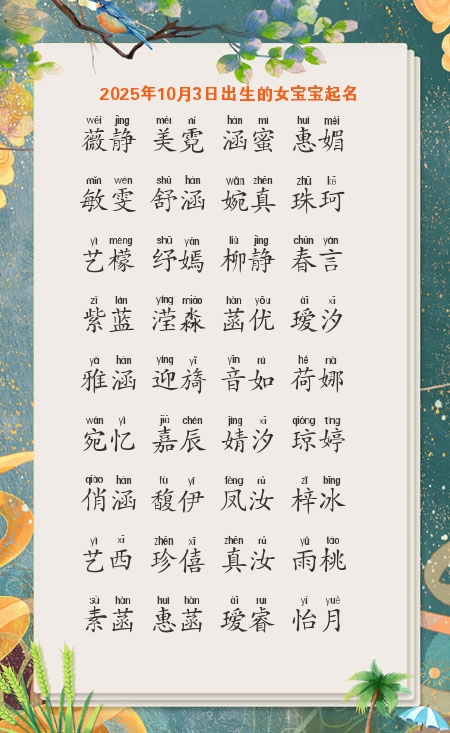 2025年10月3日出生的女宝宝起名
wēi jìng měi ní hán mì huì mèi
薇静 美霓 涵蜜 惠媚
mǐn wén shū hán wǎn zhēn zhū kē
敏雯 舒涵 婉真 珠珂
yì méng shū yān liǔ jìng chūn yán
艺檬 纾嫣 柳静 春言
zǐ lán yíng miǎo hàn yōu ài xī
紫蓝 滢淼 菡优 瑷汐
yǎ hán yíng yǐ yīn rú hé nà
雅涵 迎旖 音如 荷娜
wǎn yì jiā chén jìng xī qióng tíng
宛忆 嘉辰 婧汐 琼婷
qiào hán fù yī fèng rǔ zǐ bīng
俏涵 馥伊 凤汝 梓冰
yì xī zhēn xī zhēn rǔ yǔ táo
艺西 珍僖 真汝 雨桃
sù hàn huì hàn ài ruì yí yuè
素菡 惠菡 瑷睿 怡月